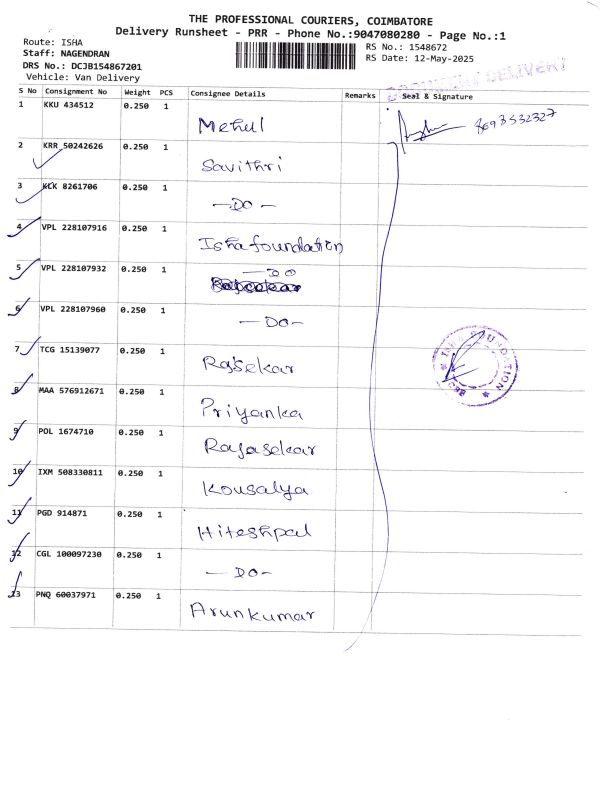 THE PROFESSIONAL COURIERS, COIMBATORE
Delivery Runsheet - PRR - Phone No.:9047080280 - Page No.:1
Route: ISHA
Staff: NAGENDRAN
DRS No.: DCJB154867201
Vehicle: Van Delivery
RS No.: 1548672
RS Date: 12-May-2025
DELIVERY
S No Consignment No Weight PCS Consignee Details Remarks Seal & Signature
1 KKU 434512 0.250 1 Mehul 8693532327
2 KRR 50242626 0.250 1 Savithri
3 KLK 8261706 0.250 1 —DO—
4 VPL 228107916 0.250 1 Isha foundation
5 VPL 228107932 0.250 1 —DO
6 VPL 228107960 0.250 1 —DO—
7 TCG 15139077 0.250 1 Rajsekar
8 MAA 576912671 0.250 1 Priyanka
9 POL 1674710 0.250 1 Rajasekar
10 IXM 508330811 0.250 1 Kousalya
11 PGD 914871 0.250 1 Hiteshpal
12 CGL 100097230 0.250 1 —DO—
13 PNQ 60037971 0.250 1 Arunkumar
ISHA FOUNDATION